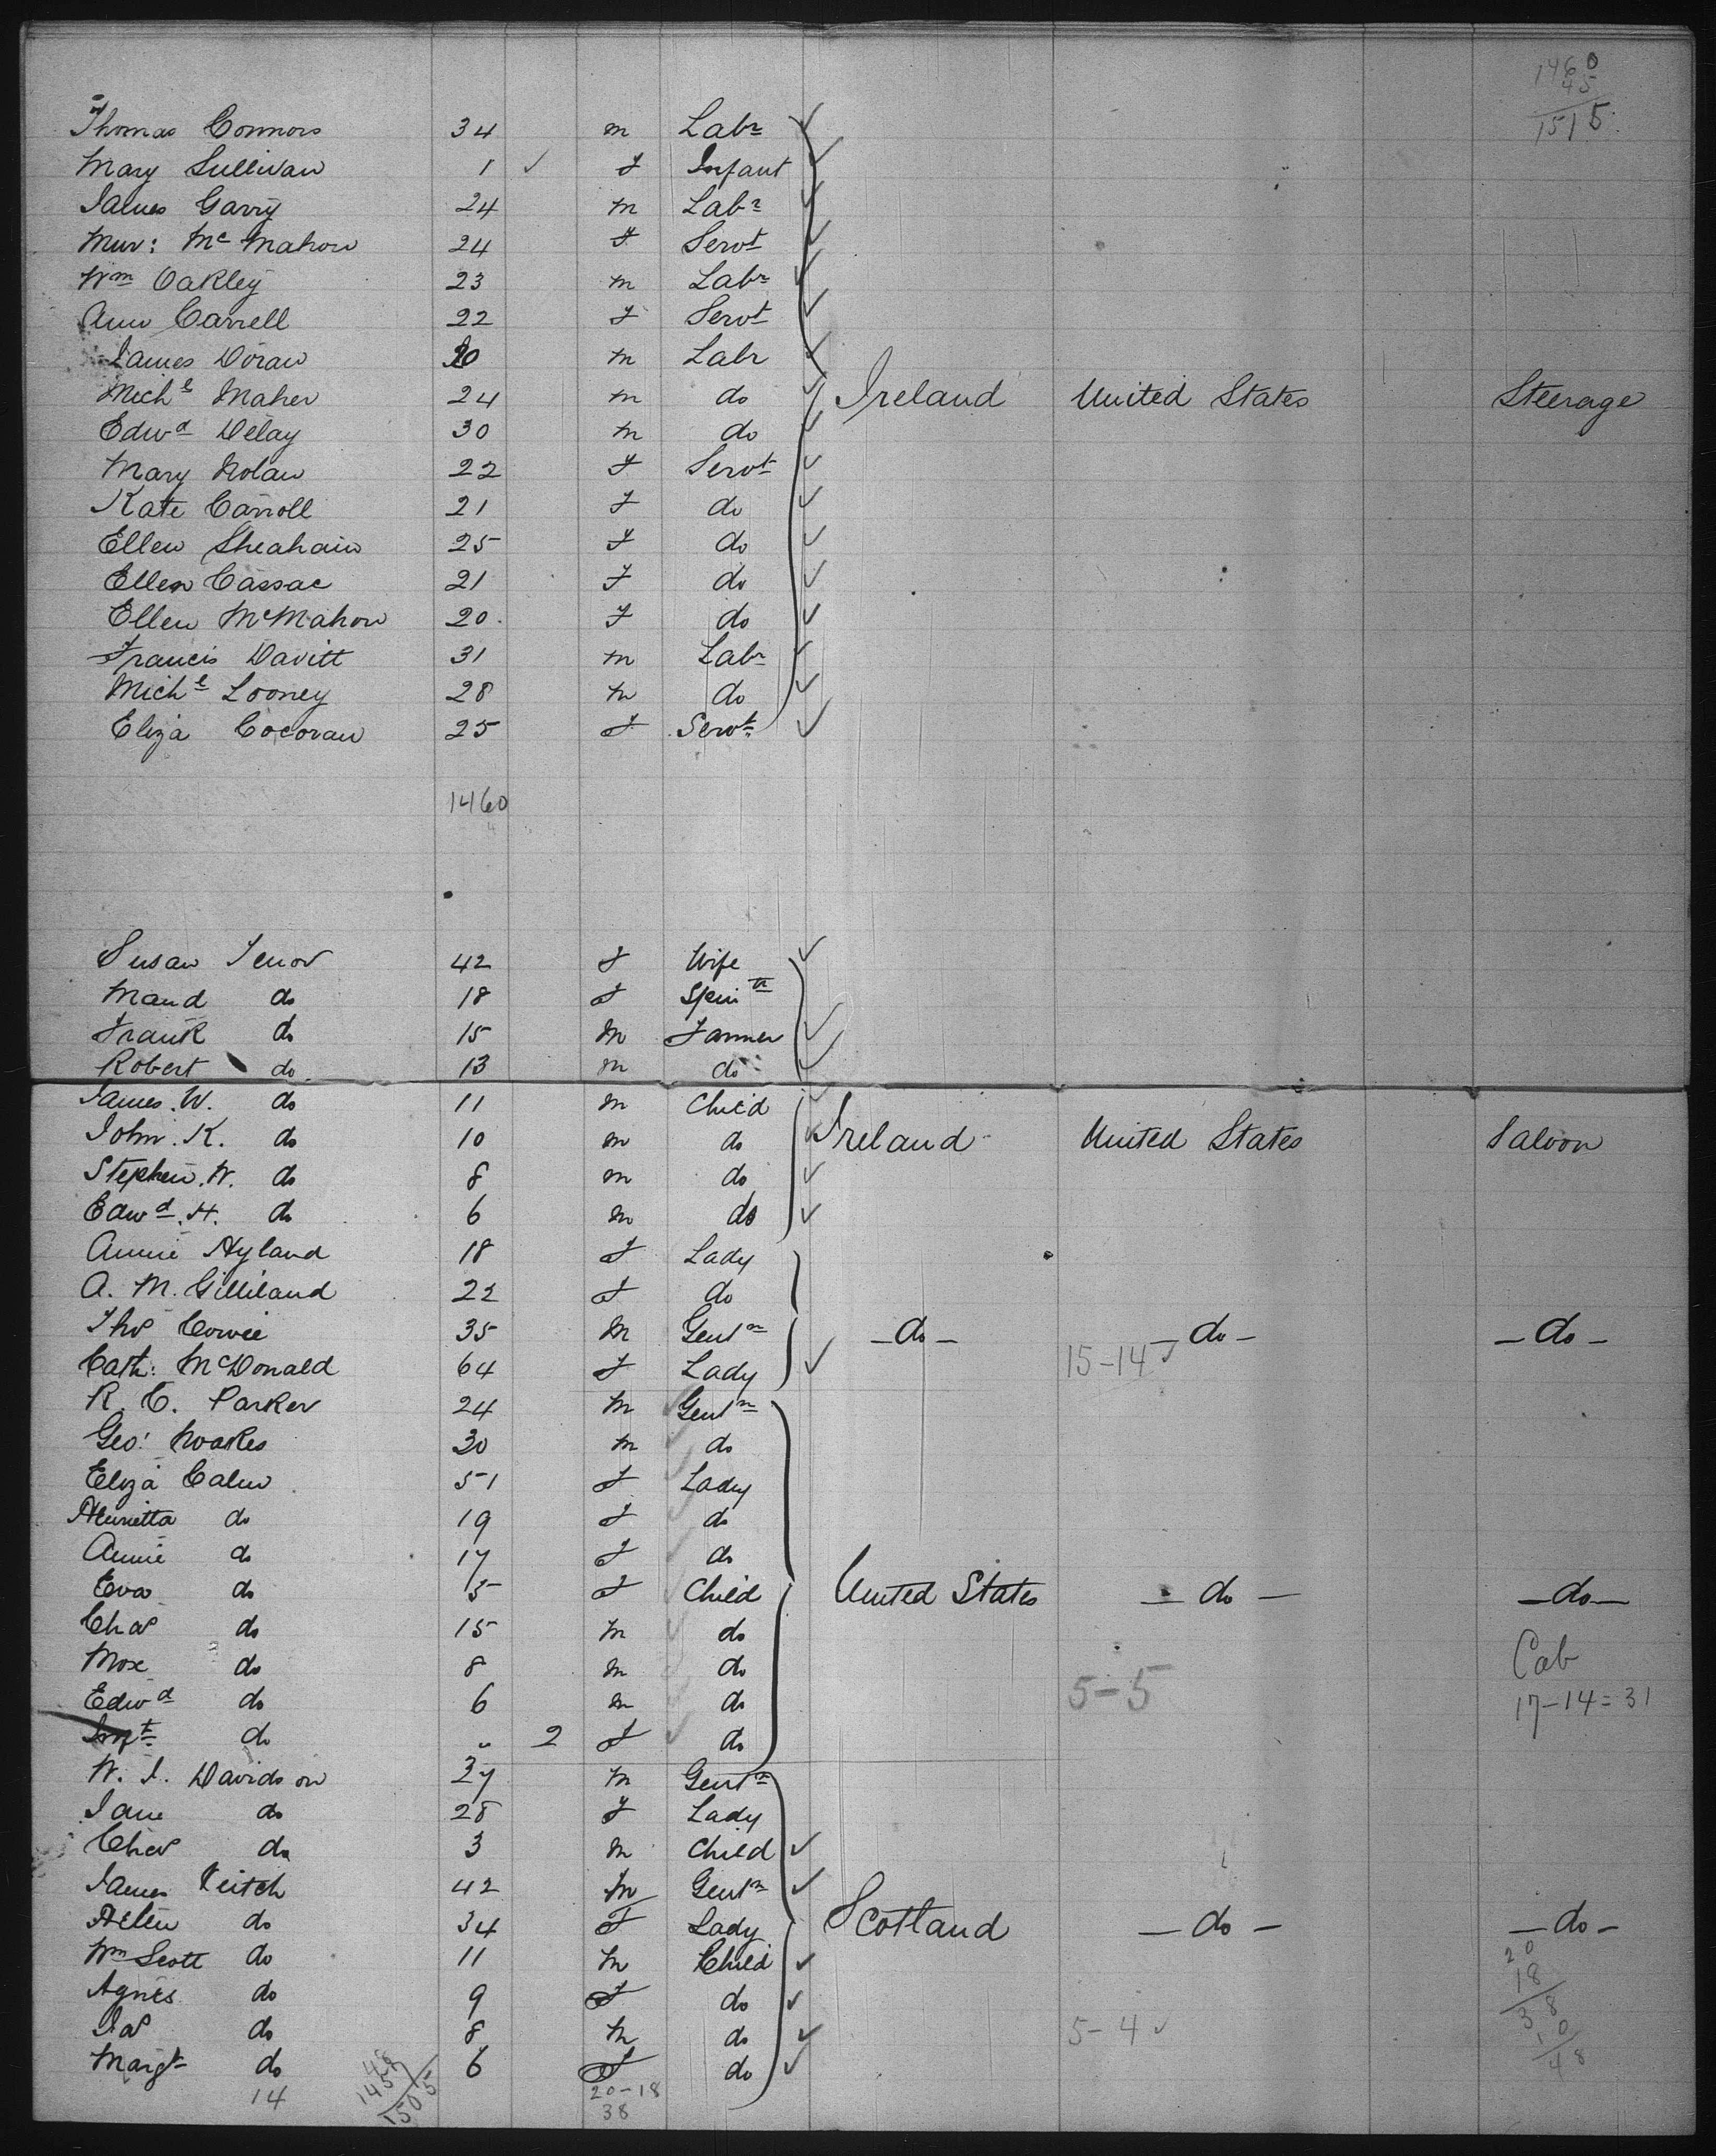 1460
45
1515
Thomas Connors 34 m Labr
Mary Sullivan 1 ✓ F Infant
James Garry 24 m Labr
Mur: Mc Mahon 24 F Servt
Wm Oakley 23 m Labr
Ann Carrell 22 F Servt
James Doran 20 m Labr
Michl Maher 24 m do Ireland United States Steerage
Edwd Delay 30 m do
Mary Nolan 22 F Servt
Kate Carroll 21 F do
Ellen Sheahain 25 F do
Ellen Cassac 21 F do
Ellen McMahon 20 F do
Francis Davitt 31 m Labr
Michl Looney 28 m do
Eliza Cocoran 25 F Servt
1460
Susan 42 F Wife
Maud do 18 F Spinr
Frank do 15 m Farmer
Robert do 13 m do
James. W. do 11 m Child
John. K. do 10 m do Ireland United States Saloon
Stephen. W. do 8 m do
Edwd. H. do 6 m do
Annie Hyland 18 F Lady
A. M. Gilliland 22 F do
Thos Cowie 35 m Gentn do do do
Cath: McDonald 64 F Lady 15-14 ✓
R. C. Parker 24 m Gentn
Geo: Noakes 30 m do
Eliza Calm 51 F Lady
Henrietta do 19 F do
Annie do 17 F do
Eva do 5 F Child United States do do
Chas do 15 m do
Mox do 8 m do Cab
Edwd do 6 m do 5-5 17-14=31
Inft do " 2 F do
W. J. Davidson 37 m Gentn
Jane do 28 F Lady
Chas do 3 m Child
James Veitch 42 m Gentn
Helen do 34 F Lady Scotland do do
Wm Scott do 11 m Child 20
Agnes do 9 F do 18
Jas do 8 m do 5-4 ✓ 38
Margt do 6 F do 10
14 1505 20-18 48
38